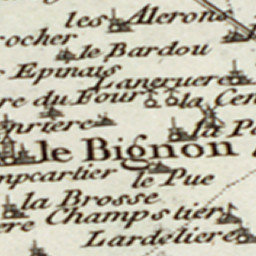 les Alerons
rocher
le Bardou
Epinais
Laneruere
re du Four
la Cen
enriere
la Pa
le Bignon
mpcartier
le Pue
la Brosse
ere Champstier
Lardeliere